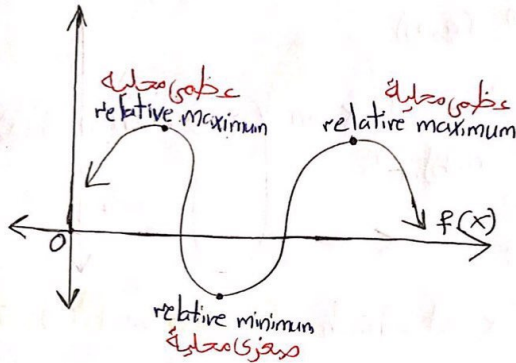 عظمى محلية
relative maximum
عظمى محلية
relative maximum
f(x)
0
relative minimum
صغرى محلية